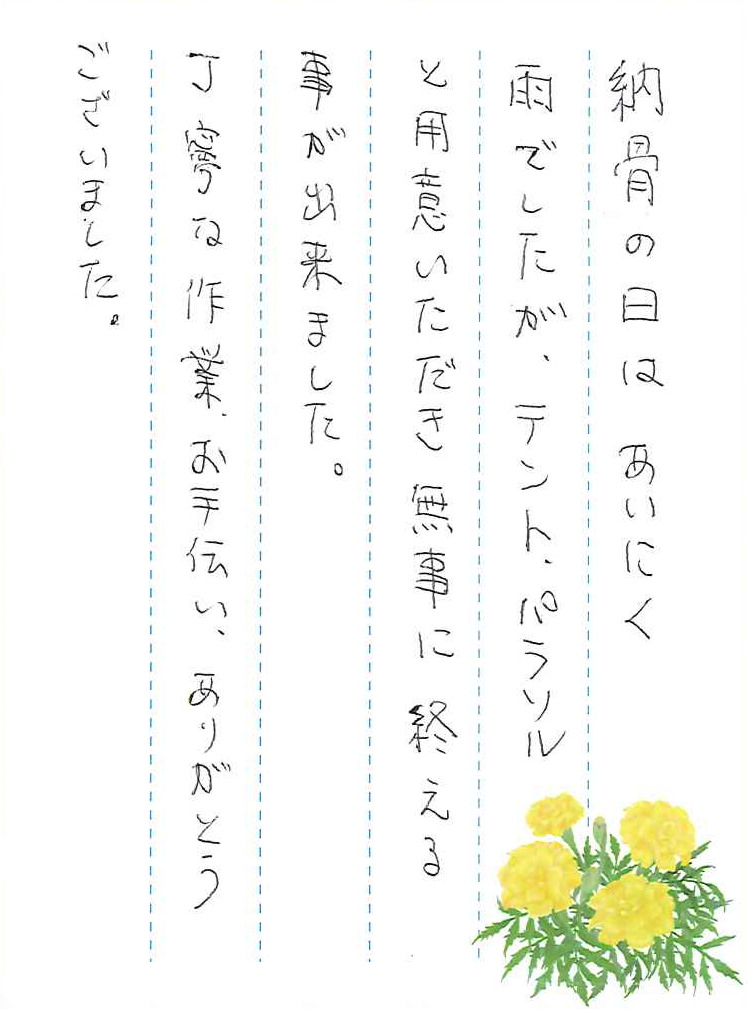 納骨の日は あいにく
雨でしたが、テント、パラソル
と用意いただき無事に 終える
事が出来ました。
丁寧な作業、お手伝い、ありがとう
ございました。